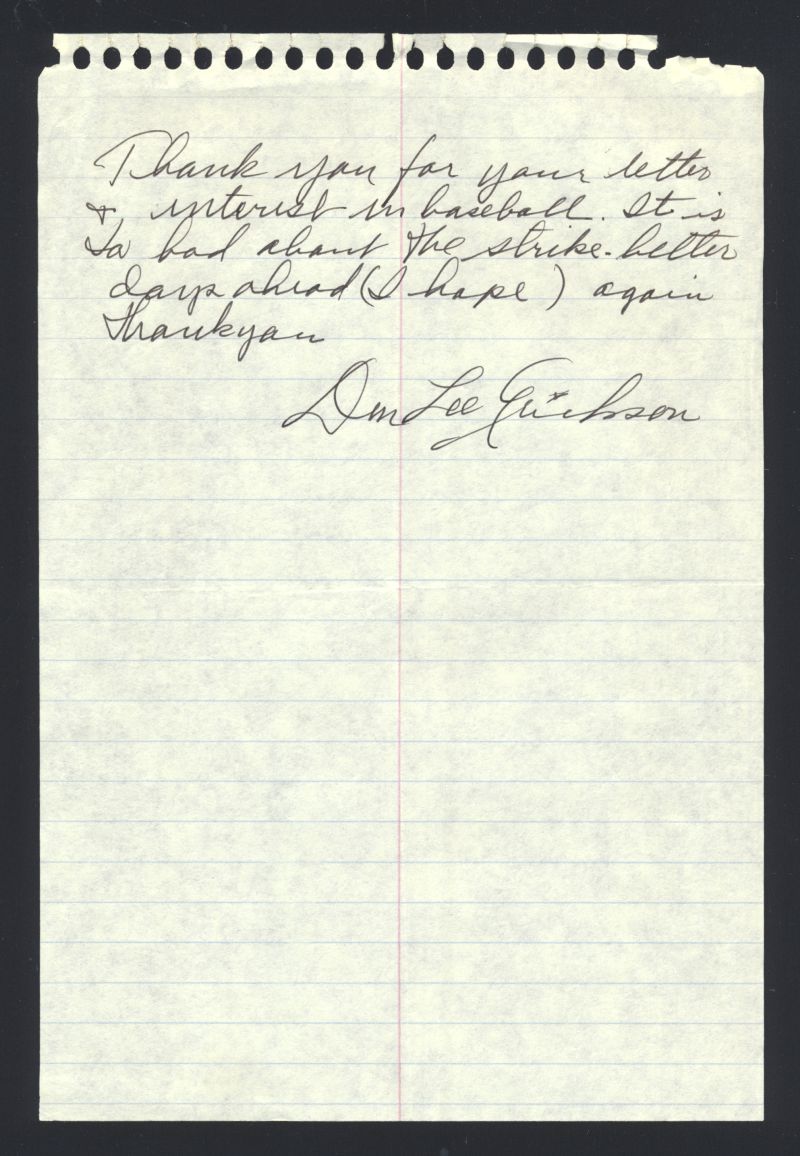 Thank you for your letter
& interest in baseball. It is
to bad about the strike. better
days ahead (I hope) again
Thankyou
Don Lee Erickson